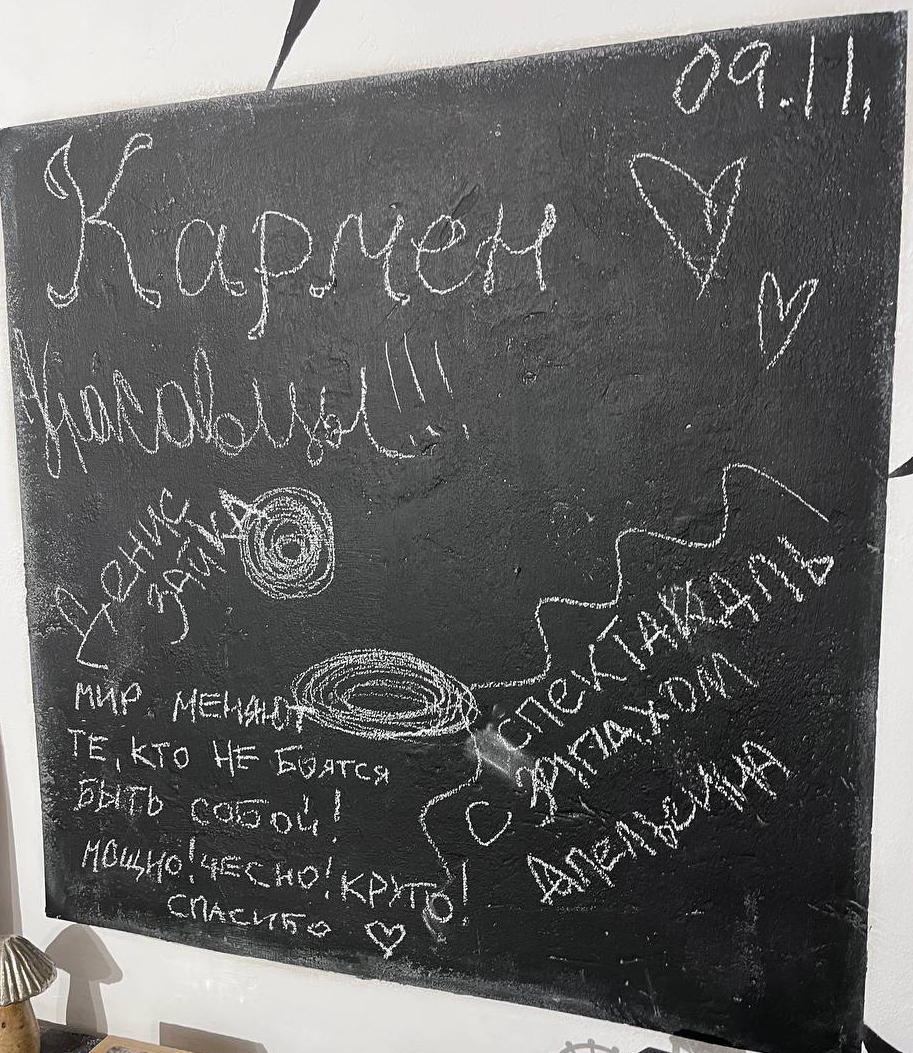 09.11.
Кармен
Красавцы!!!
Денис
зайка
МИР МЕНЯЮТ
ТЕ, КТО НЕ БОЯТСЯ
БЫТЬ СОБОЙ!
МОЩНО! ЧЕСНО! КРУТО!
СПАСИБО
СПЕКТАКЛЬ
С ЗАПАХОМ
Апельсина